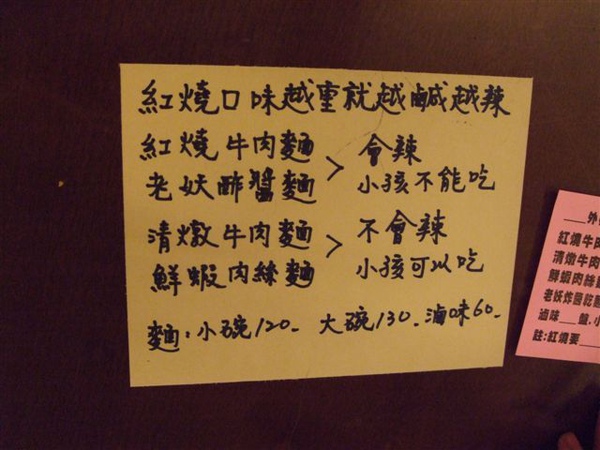 紅燒口味越重就越鹹越辣
紅燒牛肉麵
老妖酢醬麵
> 會辣
小孩不能吃
清燉牛肉麵
鮮蝦肉絲麵
> 不會辣
小孩可以吃
麵:小碗120. 大碗130. 滷味60.
___外
紅燒牛肉
清燉牛肉
鮮蝦肉絲
老妖炸醬乾
滷味___盤.小
註:紅燒要___